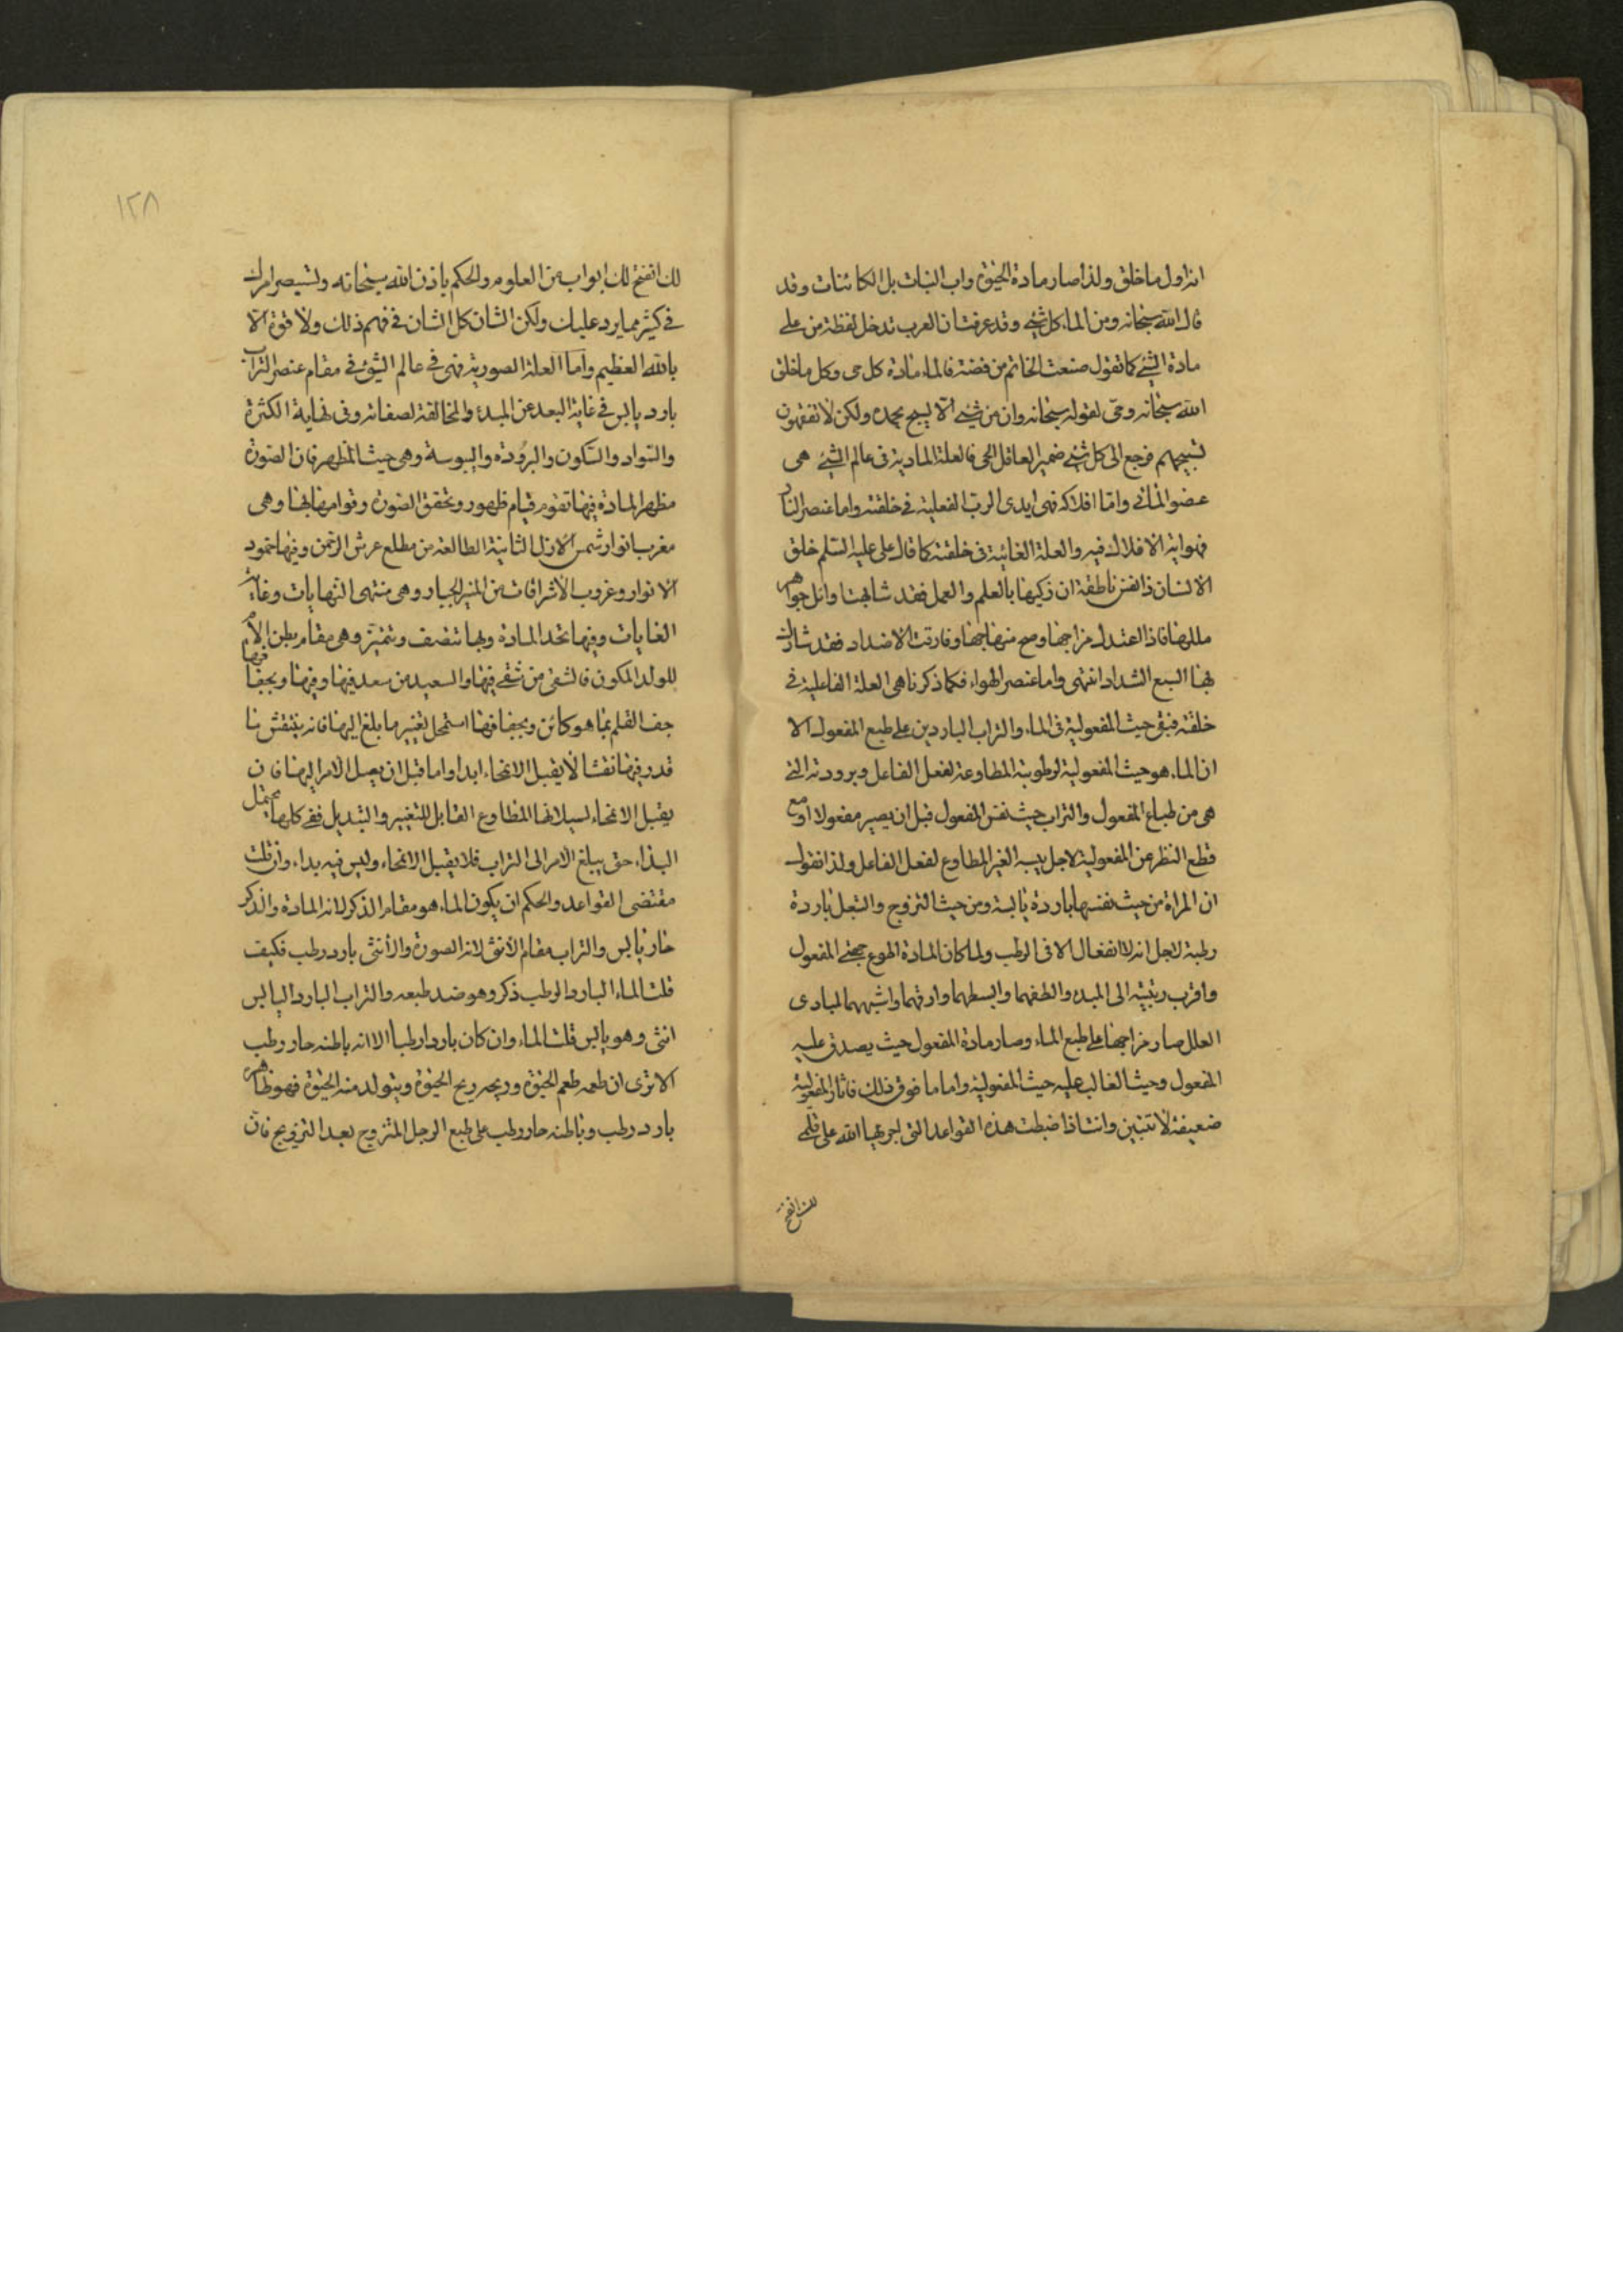 انه اول ما خلق ولذا صار مادة الحيوة واب النبات بل الكائنات وقد
قال الله سبحانه ومن الماء كل شيء وقد عرفت ان العرب تدخل لفظة من على
مادة الشيء كما تقول صنعت الخاتم من فضة فالماء مادة كل حى وكل ما خلق
الله سبحانه وحى لقوله سبحانه وان من شيء الا يسبح بحمده ولكن لا تفقهون
تسبيحهم فرجع الى كل شيء ضمير العاقل الحى فالعلة المادية فى عالم الشيء هى
عضو المائى واما افلاكه فهى ايدى الرب الفعلية فى خلقته واما عنصر النار
فهو اية الافلاك فيه والعلة الغائية فى خلقته كما قال على عليه السلم خلق
الانسان ذا نفس ناطقة ان زكيها بالعلم والعمل فقد شابهت اوائل جواهر
عللها فاذا اعتدل مزاجها وصح منهاجها وفارقت الاضداد فقد شارك
بها السبع الشداد انتهى واما عنصر الهواء فكما ذكرنا هى العلة الفاعلية فى
خلقته فبقى حيث المفعولية فى الماء والتراب الباردين على طبع المفعول الا
ان الماء هو حيث المفعولية لرطوبته المطاوعة لفعل الفاعل وبرودته التى
هى من طباع المفعول والتراب حيث نفس المفعول قبل ان يصير مفعولا او مع
قطع النظر عن المفعولية لاجل يبسه الغير المطاوع لفعل الفاعل ولذا نقول
ان المراة من حيث نفسها باردة يابسة ومن حيث التزوج والتبعل باردة
رطبة لاجل انه لا انفعال الا فى الرطب ولما كان المادة اطوع جهتى المفعول
واقرب رتبته الى المبدء والطفهما وابسطهما وارقهما واشبههما لمبادى
العلل صار مزاجها على طبع الماء وصار مادة المفعول حيث يصدق عليه
المفعول وحيث الغالب عليه حيث المفعولية واما ما فوق ذلك فاثار المفعولية
ضعيفة لا تتبين وانت اذا ضبطت هذه القواعد التى اجريها الله على قلمى
لك انفتح
١٢٨
لك انفتح لك ابواب من العلوم والحكم باذن الله سبحانه وتستبصر امرك
فى كثير مما يرد عليك ولكن الشان كل الشان فى فهم ذلك ولا قوة الا
بالله العظيم واما العلة الصورية فهى فى عالم الشيء فى مقام عنصر التراب
بارد يابس فى غاية البعد عن المبدء والمخالفة لصفاته وفى نهاية الكثرة
والسواد والسكون والبرودة واليبوسة وهى حيث المظهر فان الصورة
مظهر المادة فيها تقوم قيام ظهور وتحقق الصورة وقوامها بها وهى
مغرب انوار شمس الازل الثانية الطالعة من مطلع عرش الرحمن وفيها خمود
الانوار وغروب الاشراقات من المنير الجبار وهى منتهى النهايات وغاية
الغايات وفيها تحد المادة وبها تتصف وتتميز وهى مقام بطن الام
للولد المكون فالشقى من شقى فيها والسعيد من سعد فيها وفيها وبجفافها
جف القلم بما هو كائن وبجفافها استحل تغيير ما بلغ اليها فانه ينتقش ما
قدر فيها نقشا لا يقبل الانمحاء ابدا واما قبل ان يصل الامر اليها فان
يقبل الانمحاء لسيلانها المطاوع القابل للتغيير والتبديل ففى كلها يحتمل
البداء حتى يبلغ الامر الى التراب فلا يقبل الانمحاء وليس فيه بداء وان قلت
مقتضى القواعد والحكم ان يكون الماء هو مقام الذكر لانه المادة والذكر
حار يابس والتراب مقام الانثى لانه الصورة والانثى بارد رطب فكيف
قلت الماء البارد الرطب ذكر وهو ضد طبعه والتراب البارد اليابس
انثى وهو يابس قلت الماء وان كان باردا رطبا الا انه باطنه حار ورطب
الا ترى ان طعمه طعم الحيوة وريحه ريح الحيوة ويتولد منه الحيوة فهو ظاهره
بارد رطب وباطنه حار ورطب على طبع الرجل المتزوج بعد التزويج فان